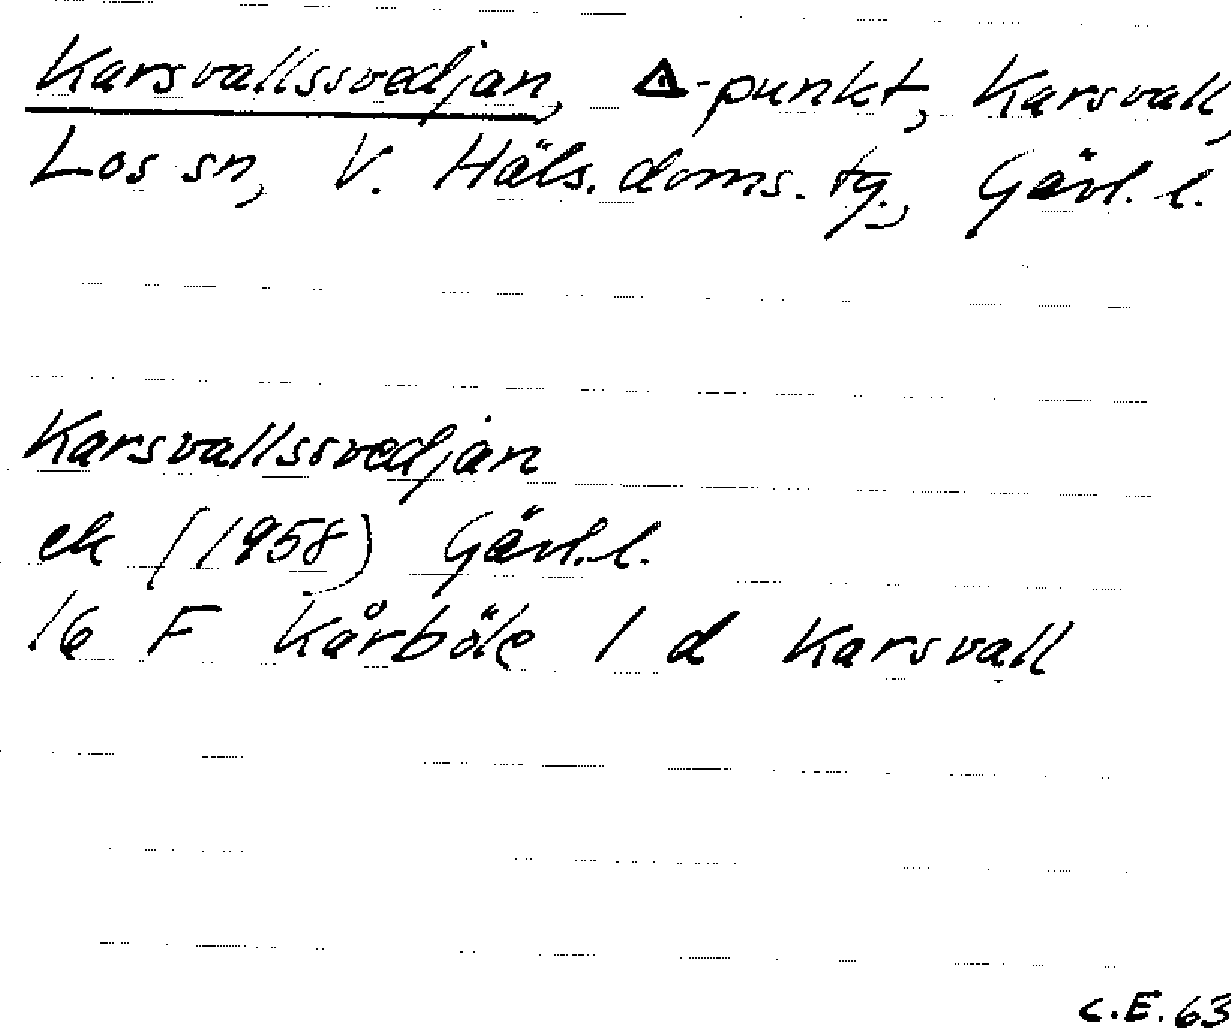 Karsvallssvedjan, △-punkt, Karsvall,
Los sn, V. Häls. doms. tg., Gävl. l.
Karsvallssvedjan
ek (1958) Gävl. l.
16 F Kårböle 1 d Karsvall
C.E. 63